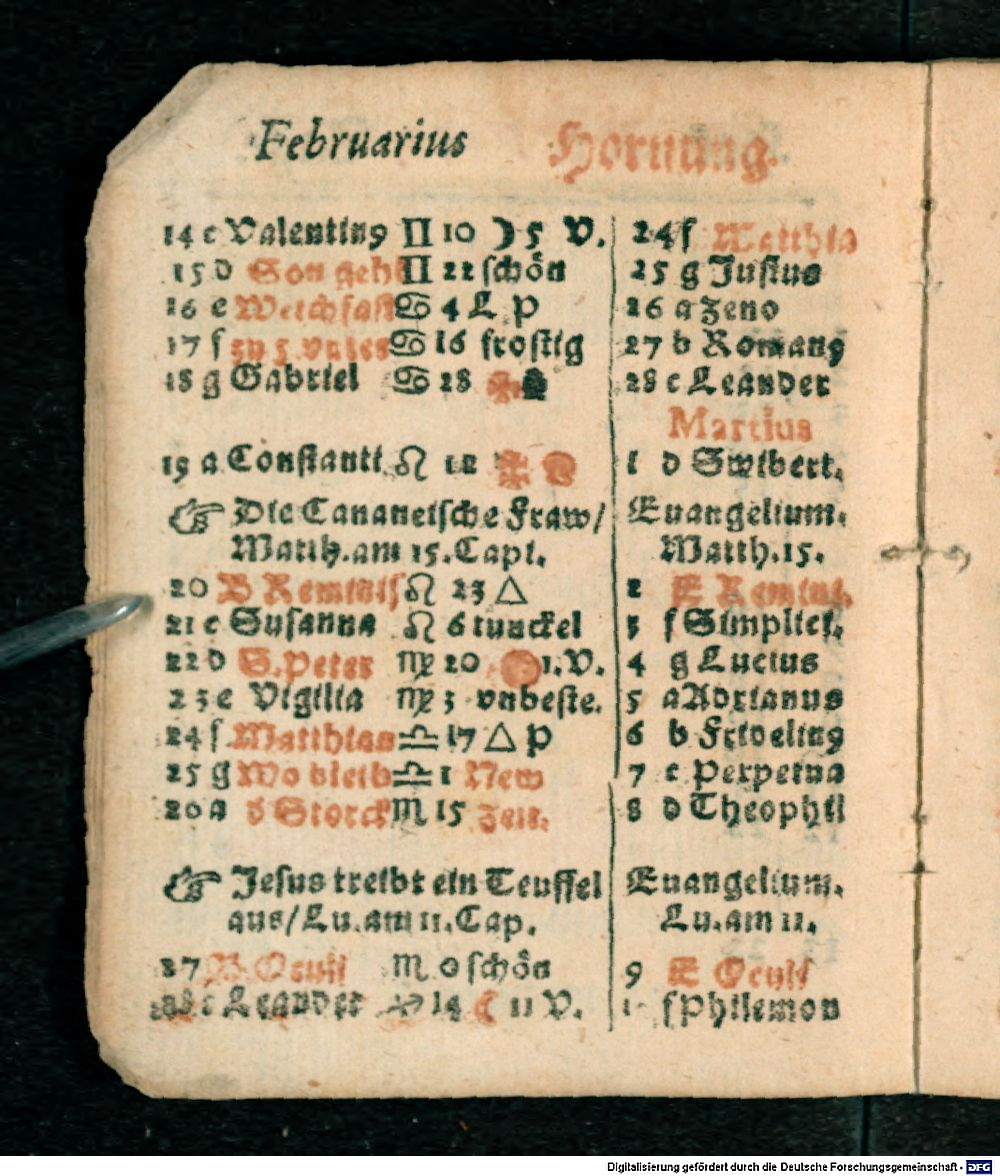 Februarius Hornung.
14 c Valentin9 ♊ 10 ☽ 5 V.
15 d Son geht ♊ 22 schön
16 e Weichfast ♋ 4 L P
17 f zu 5. vnles ♋ 16 frostig
18 g Gabriel ♋ 28
19 a Constanti ♌ 12
☞ Die Cananeische Fraw/
Matth. am 15. Capt.
20 B Reminis ♌ 23 △
21 c Susanna ♌ 6 tunckel
22 d S. Peter ♍ 20 1. V.
23 e Vigilia ♍ 3 vnbeste.
24 f Matthias ♎ 17 △ P
25 g Wo bleib ♎ 1 New
26 a d Storck ♏ 15 zeit.
☞ Jesus treibt ein Teuffel
aus/ Lu. am 11. Cap.
27 B Oculi ♏ 0 schön
28 c Leander ♐ 14 ☾ 11 V.
24 f Matthia
25 g Justus
26 a Zeno
27 b Roman9
28 c Leander
Martius
1 d Swibert.
Euangelium.
Matth. 15.
2 E Remini.
3 f Simplici.
4 g Lucius
5 a Adrianus
6 b Fridelin9
7 c Perpetua
8 d Theophil
Euangelium.
Lu. am 11.
9 E Oculi
f Philemon
Digitalisierung gefördert durch die Deutsche Forschungsgemeinschaft - DFG